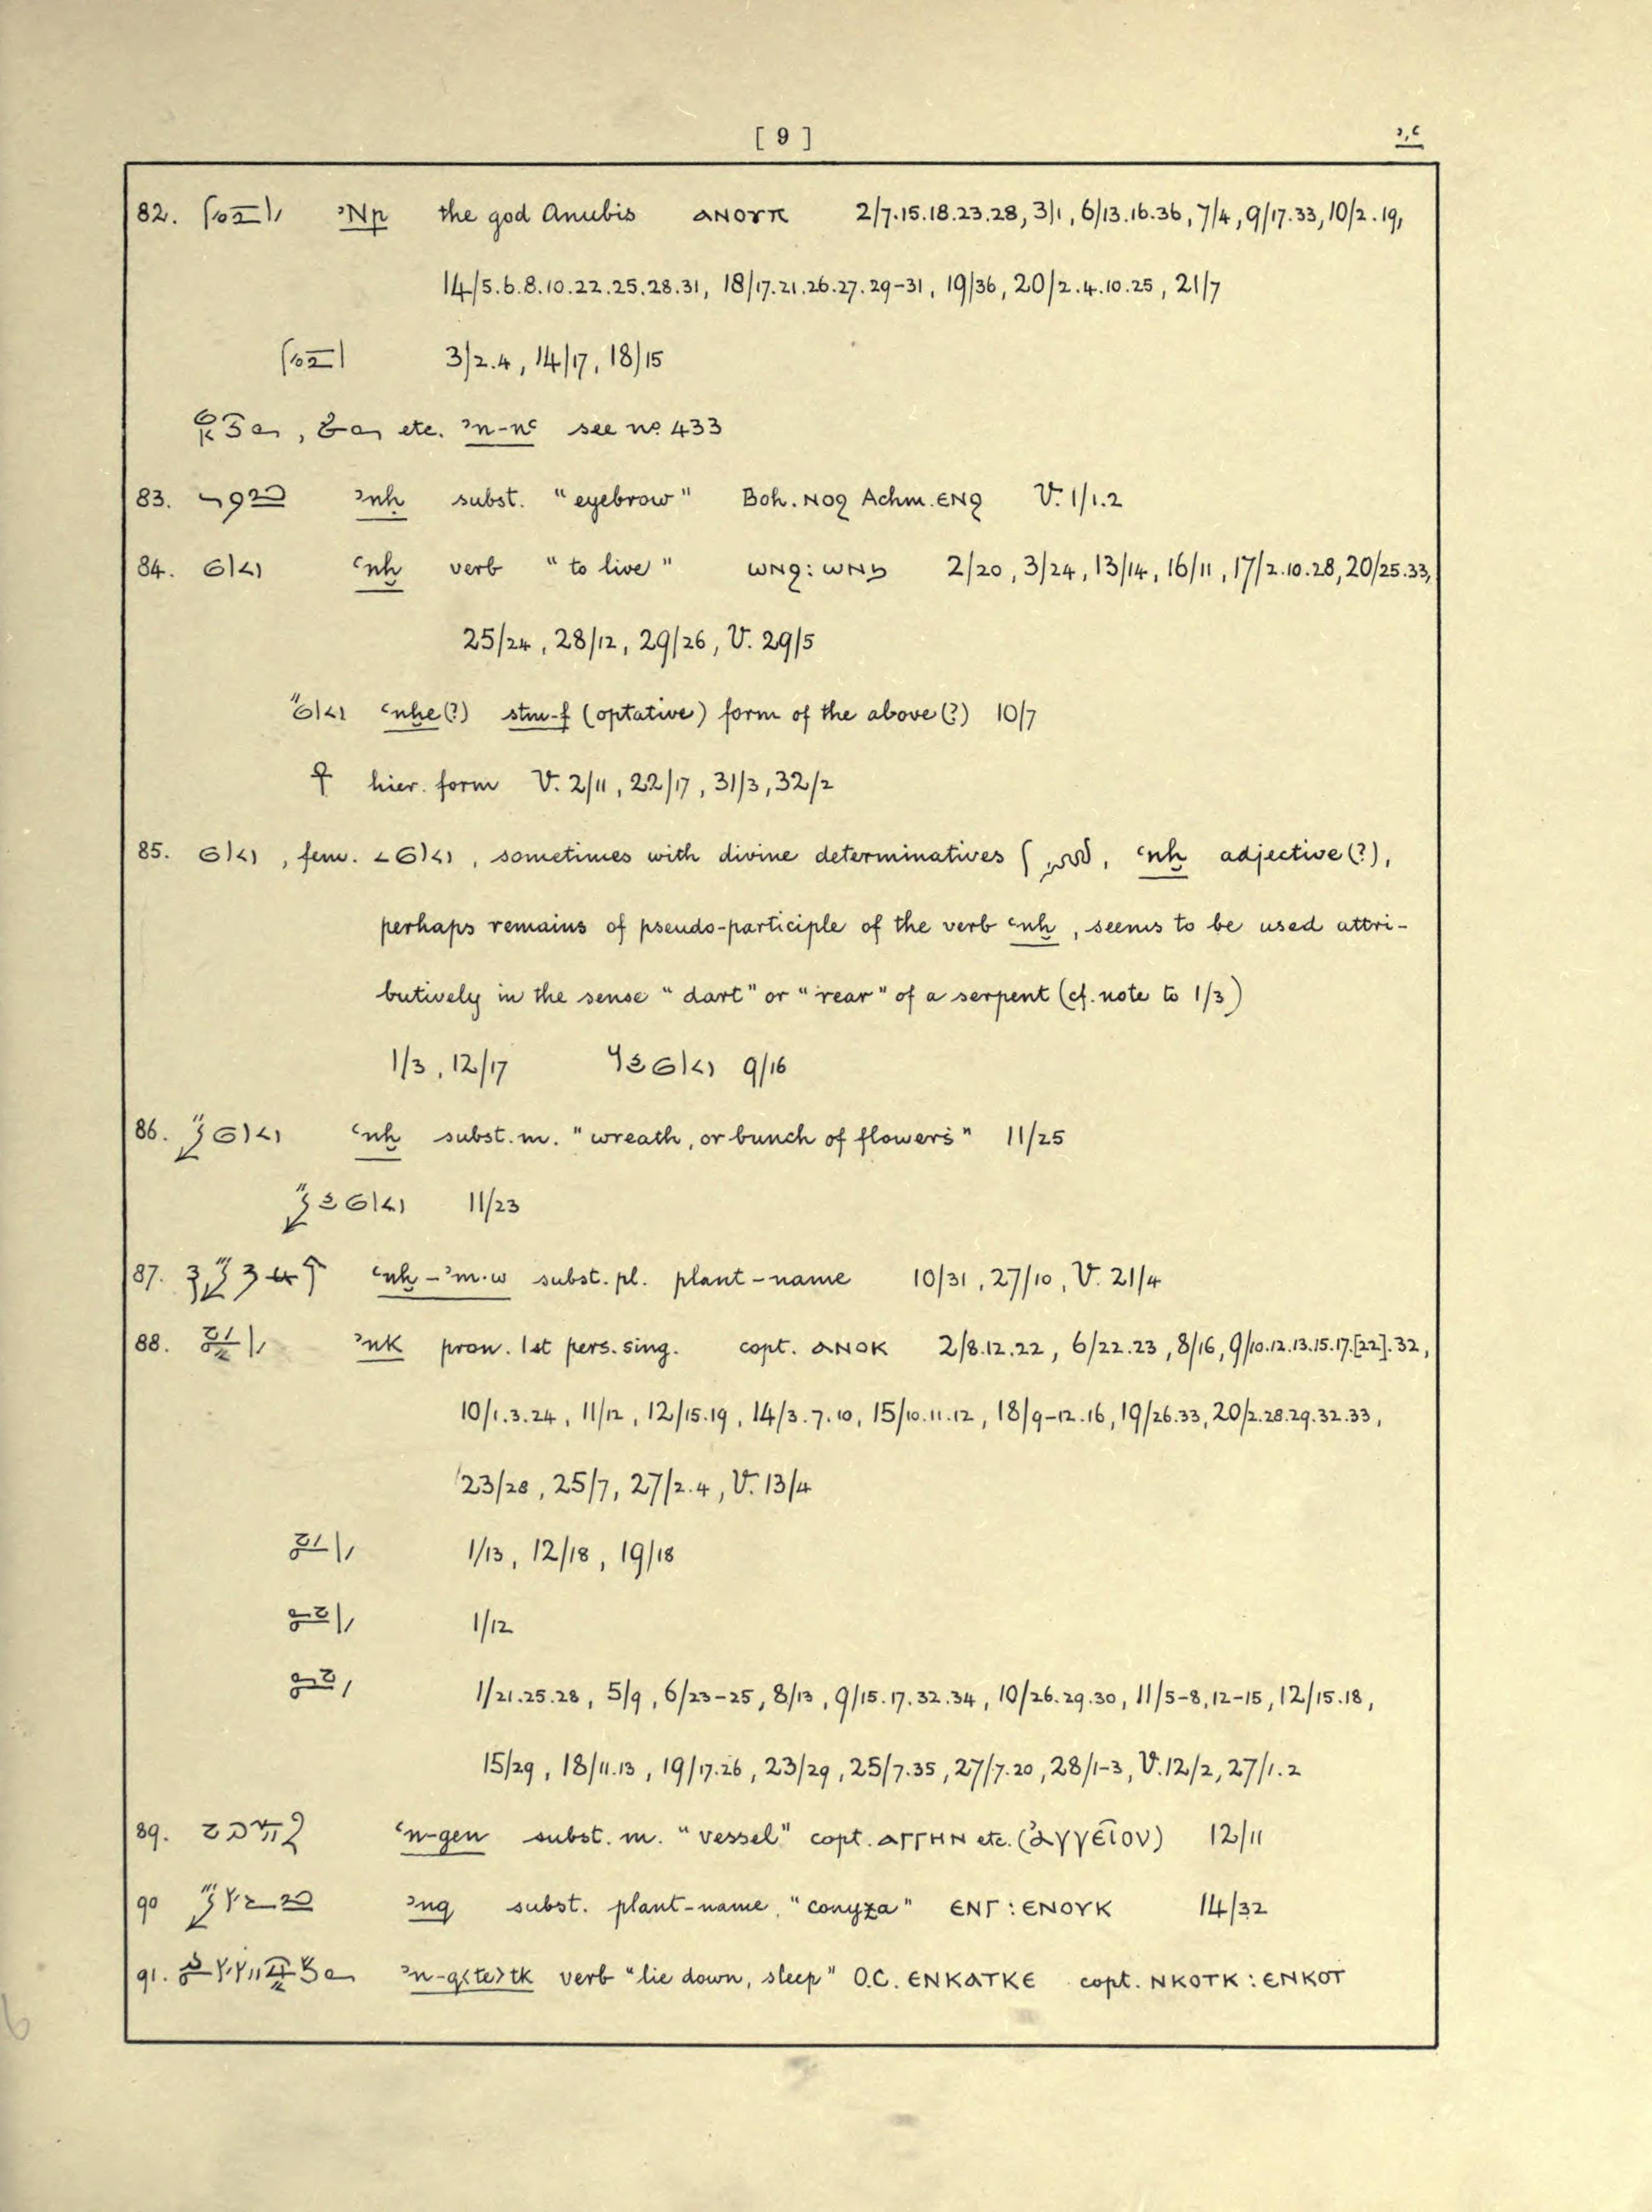 [ 9 ]
ꜣ,ꜥ
82. ꜣNp the god Anubis ⲁⲛⲟⲩⲡ 2/7.15.18.23.28, 3/1, 6/13.16.36, 7/4, 9/17.33, 10/2.19,
14/5.6.8.10.22.25.28.31, 18/17.21.26.27.29-31, 19/36, 20/2.4.10.25, 21/7
3/2.4, 14/17, 18/15
etc. ꜣn-nꜥ see no. 433
83. ꜣnḥ subst. "eyebrow" Boh. ⲛⲟϩ Achm. ⲉⲛϩ V. 1/1.2
84. ꜥnḫ verb "to live" ⲱⲛϩ: ⲱⲛϧ 2/20, 3/24, 13/14, 16/11, 17/2.10.28, 20/25.33,
25/24, 28/12, 29/26, V. 29/5
ꜥnḫe(?) stm-f (optative) form of the above(?) 10/7
☥ hier. form V. 2/11, 22/17, 31/3, 32/2
85. , fem. , sometimes with divine determinatives , ꜥnḫ adjective(?),
perhaps remains of pseudo-participle of the verb ꜥnḫ, seems to be used attri-
butively in the sense "dart" or "rear" of a serpent (cf. note to 1/3)
1/3, 12/17 9/16
86. ꜥnḫ subst. m. "wreath, or bunch of flowers" 11/25
11/23
87. ꜥnḫ-ꜣm.w subst. pl. plant-name 10/31, 27/10, V. 21/4
88. ꜣnk pron. 1st pers. sing. copt. ⲁⲛⲟⲕ 2/8.12.22, 6/22.23, 8/16, 9/10.12.13.15.17.[22].32,
10/1.3.24, 11/12, 12/15.19, 14/3.7.10, 15/10.11.12, 18/9-12.16, 19/26.33, 20/2.28.29.32.33,
23/28, 25/7, 27/2.4, V. 13/4
1/13, 12/18, 19/18
1/12
1/21.25.28, 5/9, 6/23-25, 8/13, 9/15.17.32.34, 10/26.29.30, 11/5-8, 12-15, 12/15.18,
15/29, 18/11.13, 19/17.26, 23/29, 25/7.35, 27/7.20, 28/1-3, V. 12/2, 27/1.2
89. ꜥn-gen subst. m. "vessel" copt. ⲁⲅⲅⲏⲛ etc. (ἀγγεῖον) 12/11
90 ꜣnq subst. plant-name, "conyza" ⲉⲛⲅ: ⲉⲛⲟⲩⲕ 14/32
91. ꜣn-q<te>tk verb "lie down, sleep" O.C. ⲉⲛⲕⲁⲧⲕⲉ copt. ⲛⲕⲟⲧⲕ: ⲉⲛⲕⲟⲧ